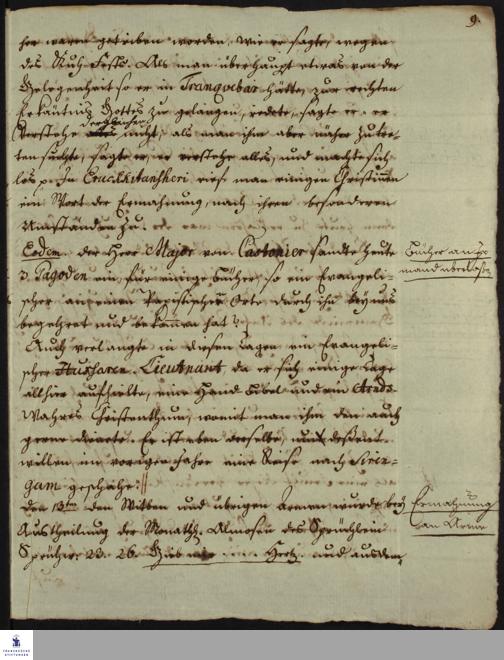 9.
her waren getrieben worden, wie er sagte, wegen
des Ruh-Fests. Als man überhaupt etwas von der
Gelegenheit so er in Tranquebar hätte, zur rechten
Erkäntnis Gottes zu gelangen, redete, sagte er: er
dergleichen
verstehe nicht, als man ihm aber näher zutre-
ten suchte, sagte er, er verstehe alles, und machte sich
los p. In rief man einigen Christinnen
ein Wort der Ermahnung, nach ihren besonderen
Umständen zu.
Eodem. der Herr Major von sandte heute
3. Pagoden ein, für einige Bücher so ein Evangeli-
scher an einem Papistischen Orte durch ihn bey uns
begehret und bekommen hat.
Auch verlangte in diesen Tagen ein Evangeli-
scher Husharen-Lieutnant, da er sich einige Tage
allhier aufhielte, eine Hand-Bibel und ein Arnds
Wahres Christenthum, womit man ihm den auch
gerne dienete. Er ist eben derselbe, um deßent-
willen im vorigen Jahre eine Reise nach Sirin-
gam geschahe.
Den 13ten Den Witben und übrigen Armen wurde bey
Austheilung der Monathl. Almosen das Sprüchlein
Sprüchw. 23. 26. Gieb mir Hertz. und aus dem
Bücher an
Ermahnung
an Arme
FRANCKESCHE
STIFTUNGEN